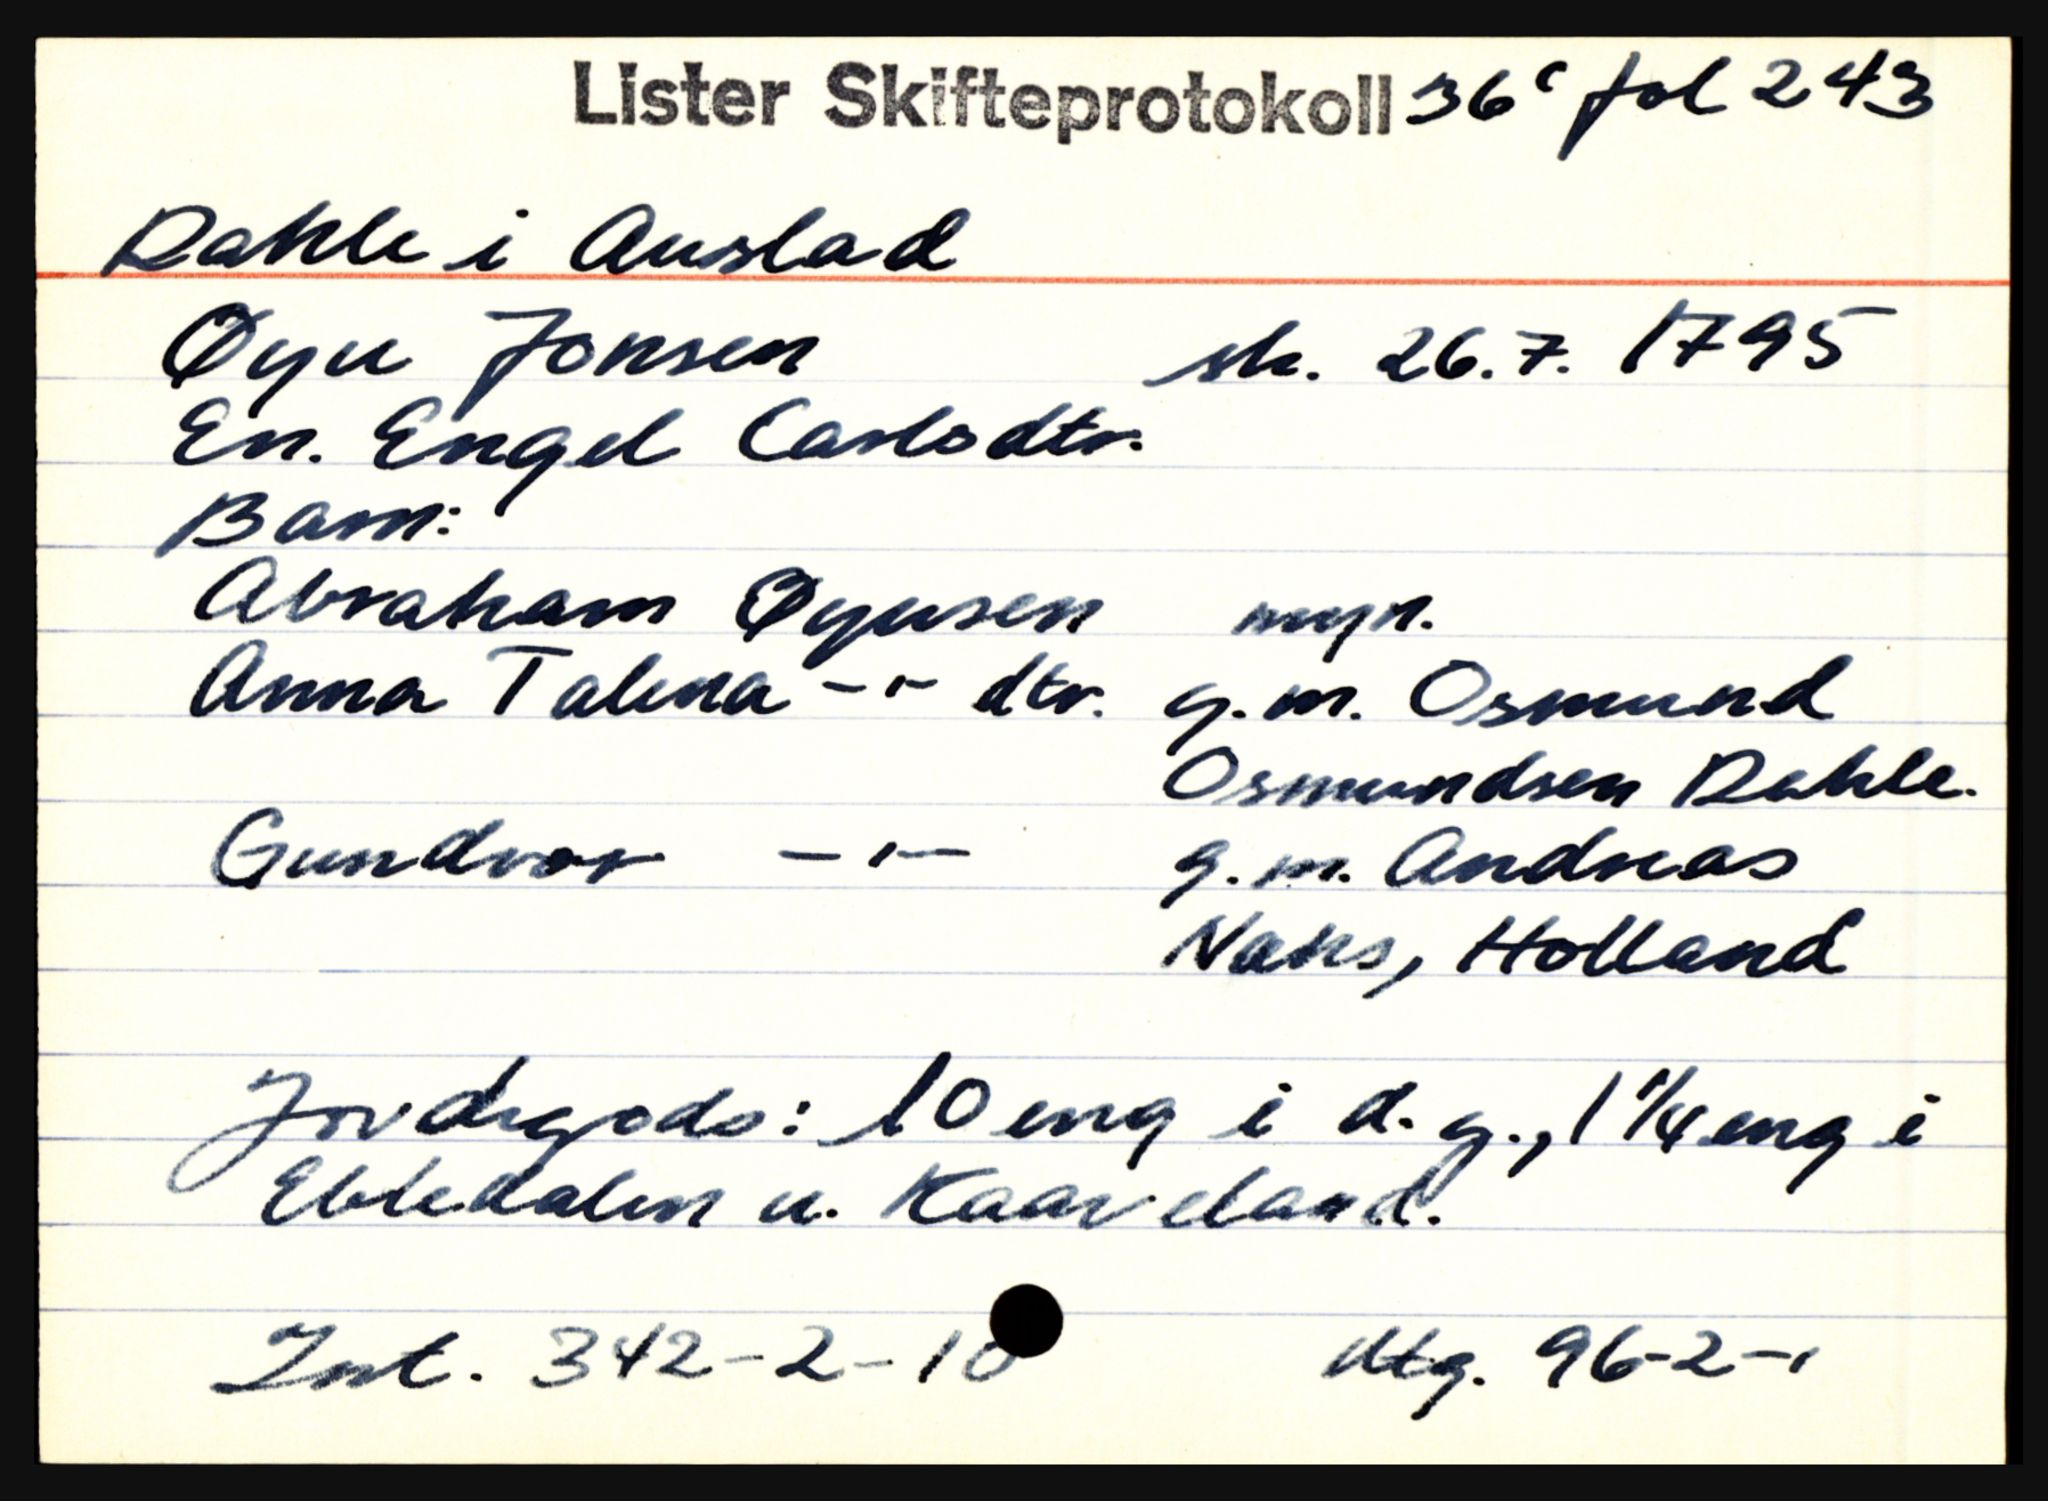 Lister Skifteprotokoll 36c fol 243
Dahle i Auslad
Øyu Jonsen sk. 26.7. 1795
En. Engel Carlsdtr.
Barn:
Abraham Øyusen myn.
Anna Talena -"- dtr. g.m. Osmund
Osmundsen Dahle.
Gundvor -"- g.m. Andreas
Holland
Jordegods: 10 eng i d.g., 1 1/4 eng i
Ebledalen u. Kaaveland.
Int. 342-2-10 Utg. 96-2-"